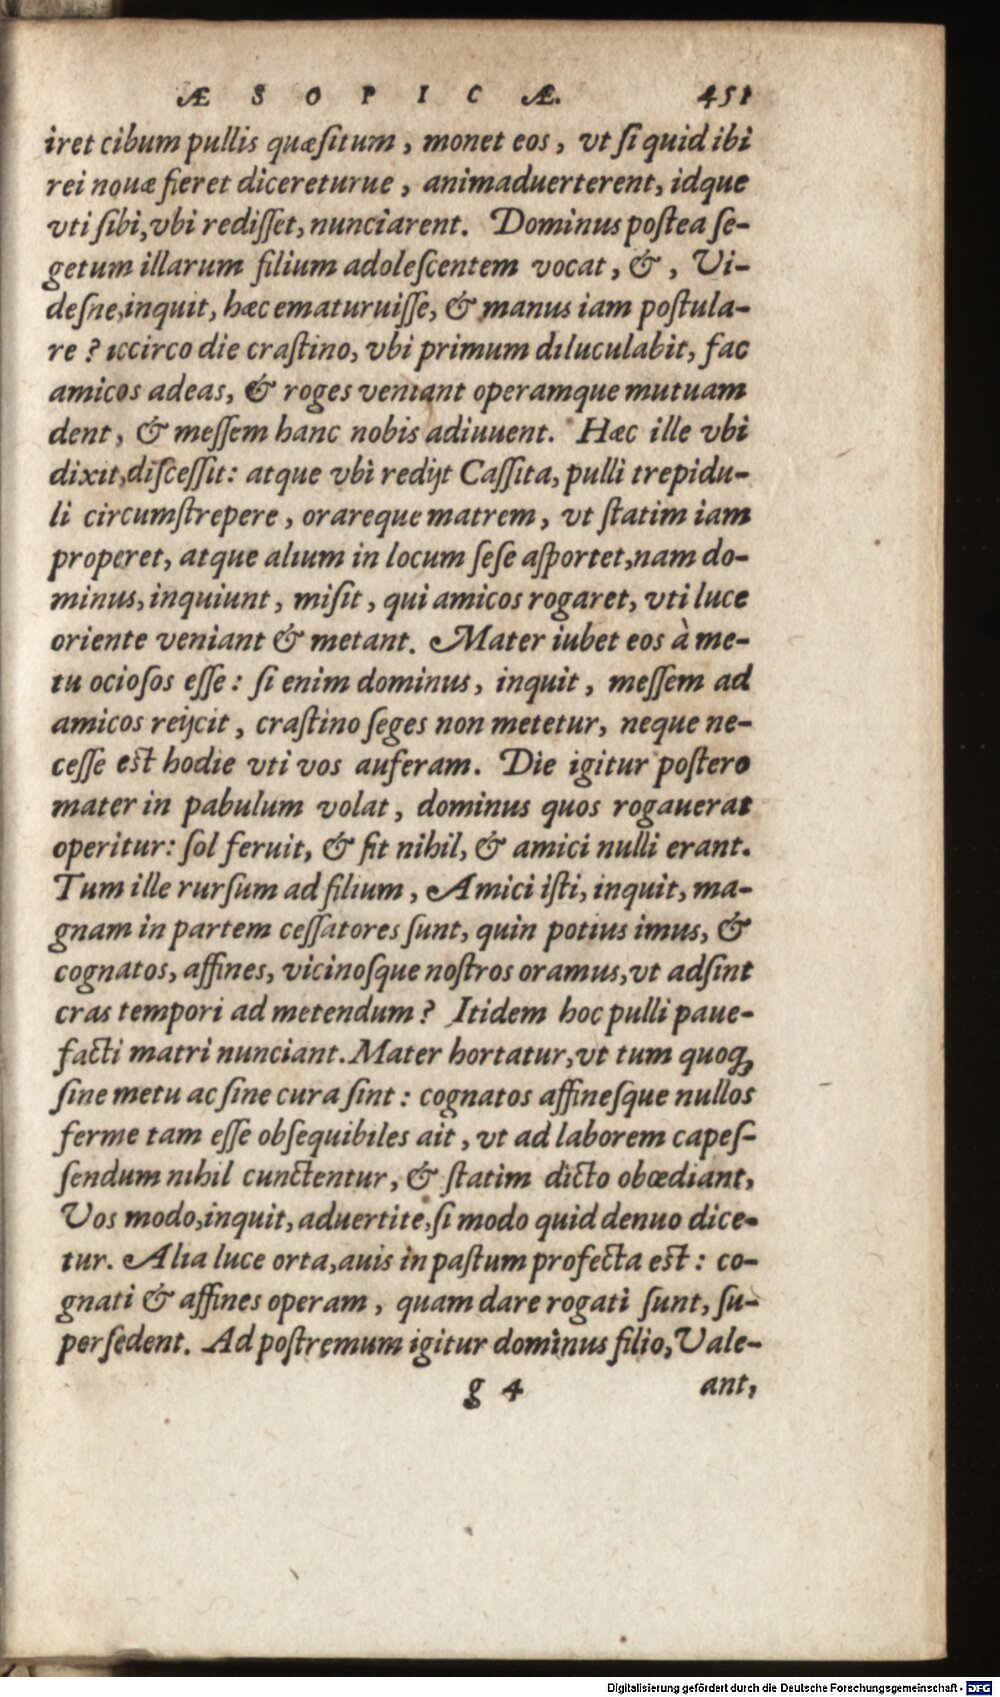 ÆSOPICÆ. 451
iret cibum pullis quæſitum, monet eos, vt ſi quid ibi
rei nouæ fieret dicereturue, animaduerterent, idque
vti ſibi, vbi rediſſet, nunciarent. Dominus poſtea ſe-
getum illarum filium adoleſcentem vocat, &, Vi-
deſne, inquit, hæc ematuruiſſe, & manus iam poſtula-
re? iccirco die craſtino, vbi primum diluculabit, fac
amicos adeas, & roges veniant operamque mutuam
dent, & meſſem hanc nobis adiuuent. Hæc ille vbi
dixit, diſceſſit: atque vbi redijt Caſſita, pulli trepidu-
li circumſtrepere, orareque matrem, vt ſtatim iam
properet, atque alium in locum ſeſe aſportet, nam do-
minus, inquiunt, miſit, qui amicos rogaret, vti luce
oriente veniant & metant. Mater iubet eos à me-
tu ocioſos eſſe: ſi enim dominus, inquit, meſſem ad
amicos reijcit, craſtino ſeges non metetur, neque ne-
ceſſe eſt hodie vti vos auferam. Die igitur poſtero
mater in pabulum volat, dominus quos rogauerat
operitur: ſol feruit, & fit nihil, & amici nulli erant.
Tum ille rurſum ad filium, Amici iſti, inquit, ma-
gnam in partem ceſſatores ſunt, quin potius imus, &
cognatos, affines, vicinoſque noſtros oramus, vt adſint
cras tempori ad metendum? Itidem hoc pulli paue-
facti matri nunciant. Mater hortatur, vt tum quoq́;
ſine metu ac ſine cura ſint: cognatos affineſque nullos
ferme tam eſſe obſequibiles ait, vt ad laborem capeſ-
ſendum nihil cunctentur, & ſtatim dicto obœdiant,
Vos modo, inquit, aduertite, ſi modo quid denuo dice-
tur. Alia luce orta, auis in paſtum profecta eſt: co-
gnati & affines operam, quam dare rogati ſunt, ſu-
perſedent. Ad poſtremum igitur dominus filio, Vale-
g 4 ant,
Digitalisierung gefördert durch die Deutsche Forschungsgemeinschaft - DFG